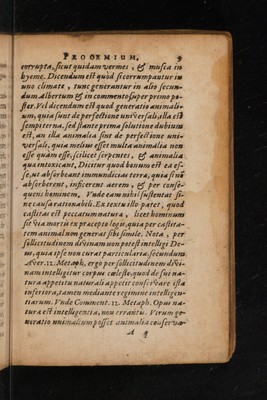 PROOEMIUM. 9
corrupta, sicut quidam vermes, & musca in
hyeme. Dicendum est quòd si corrumpantur in
uno climate, tunc generantur in alio secun-
dum Albertum & in commento super primo po-
ster. Vel dicendum est quod generatio animali-
um, quia sunt de perfectione universali, illa est
sempiterna, sed stante prima solutione dubium
est, an illa animalia sint de perfectione uni-
versali, quia melius esset multa animalia non
esse quàm esse, scilicet serpentes, & animalia
quæ intoxicant, Dicitur quod bonum est ea es-
se, ut absorbeant immundicias terræ, quia si nō
absorberent, inficerent aerem, & per conse-
quens hominem, Vnde eam nihil sustentat si-
ne causa rationabili. Ex textu illo patet, quod
castitas est peccatum natura, licet hominum
sit via mortis ex præcepto legis, quia per castita-
tem animal non generat sibi simile. Nota, per
sollicitudinem divinam non potest intelligi De-
us, quia ipse non curat particularia, secundum
Aver. 12. Metaph. ergo per sollicitudinem divi-
nam intelligitur corpus cœleste, quod de sui na-
tura appetitu naturali appetit conservare ista
inferiora, tamen mediante regimine intelligen-
tiarum. Vnde Comment. 12. Metaph. Opus na-
tura est intelligentia, non errantis. Vtrum ge-
neratio animalium possit animalia conserva-
A 9